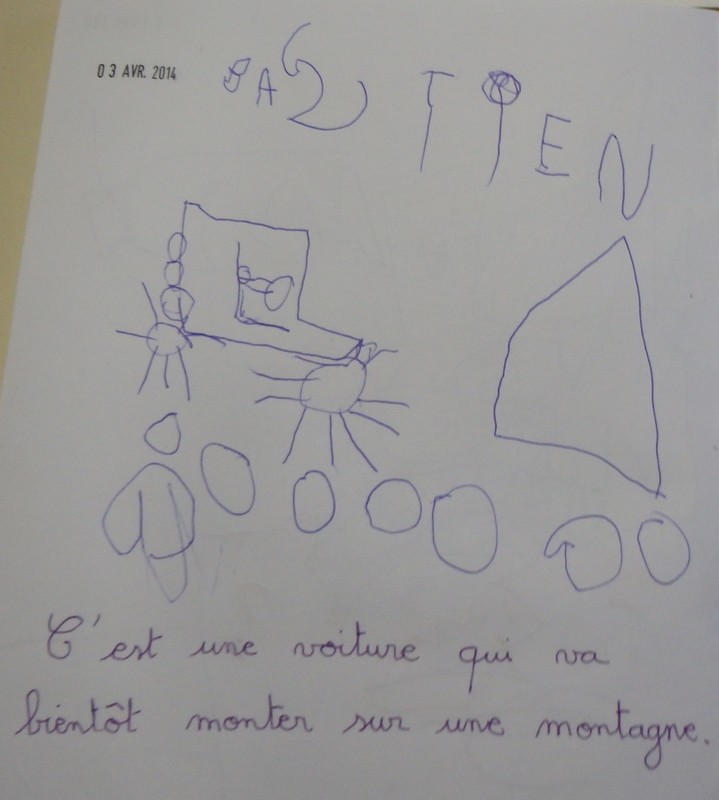 03 AVR. 2014
BASTIEN
C'est une voiture qui va
bientôt monter sur une montagne.